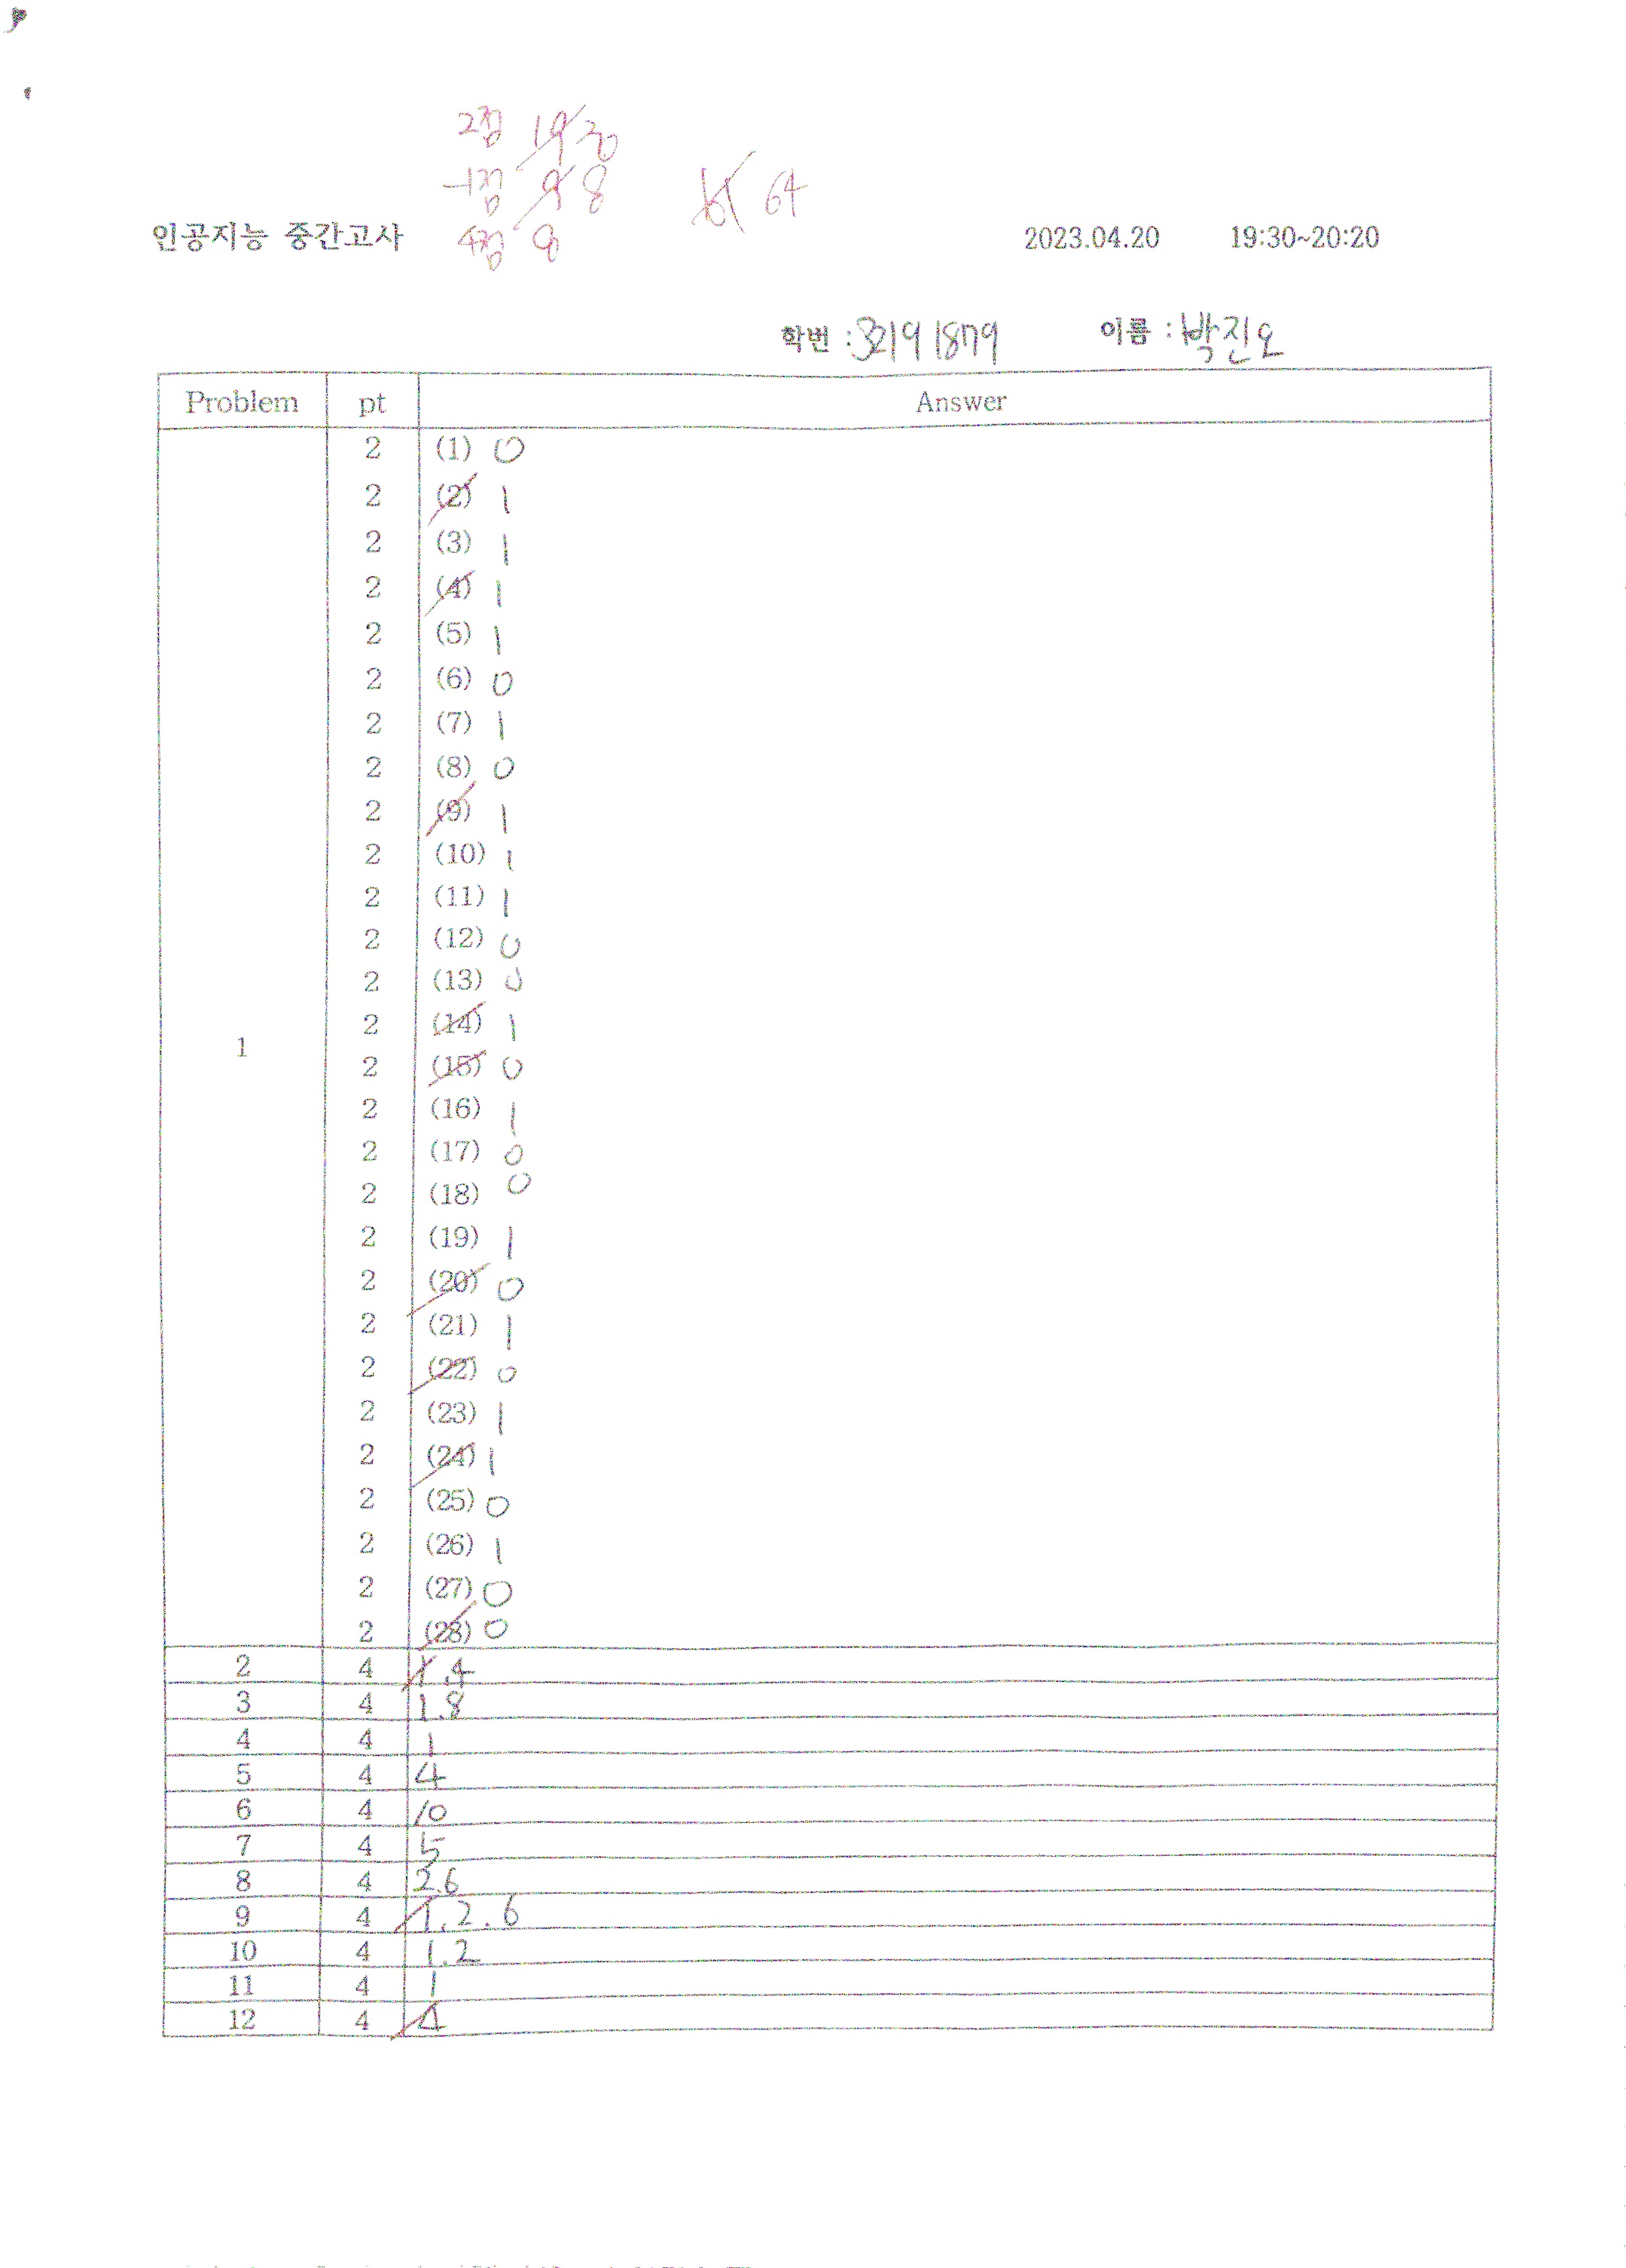 2점 19 20
-1점 9 8
4점 8
61 64
인공지능 중간고사 2023.04.20 19:30~20:20
학번 : 32191879 이름 : 박진오
Problem pt Answer
2 (1) 0
2 (2) 1
2 (3) 1
2 (4) 1
2 (5) 1
2 (6) 0
2 (7) 1
2 (8) 0
2 (9) 1
2 (10) 1
2 (11) 1
2 (12) 0
2 (13) 0
2 (14) 1
1
2 (15) 0
2 (16) 1
2 (17) 0
2 (18) 0
2 (19) 1
2 (20) 0
2 (21) 1
2 (22) 0
2 (23) 1
2 (24) 1
2 (25) 0
2 (26) 1
2 (27) 0
2 (28) 0
2 4 1.4
3 4 1.8
4 4 1
5 4 4
6 4 10
7 4 5
8 4 2.6
9 4 1.2.6
10 4 1.2
11 4 1
12 4 4